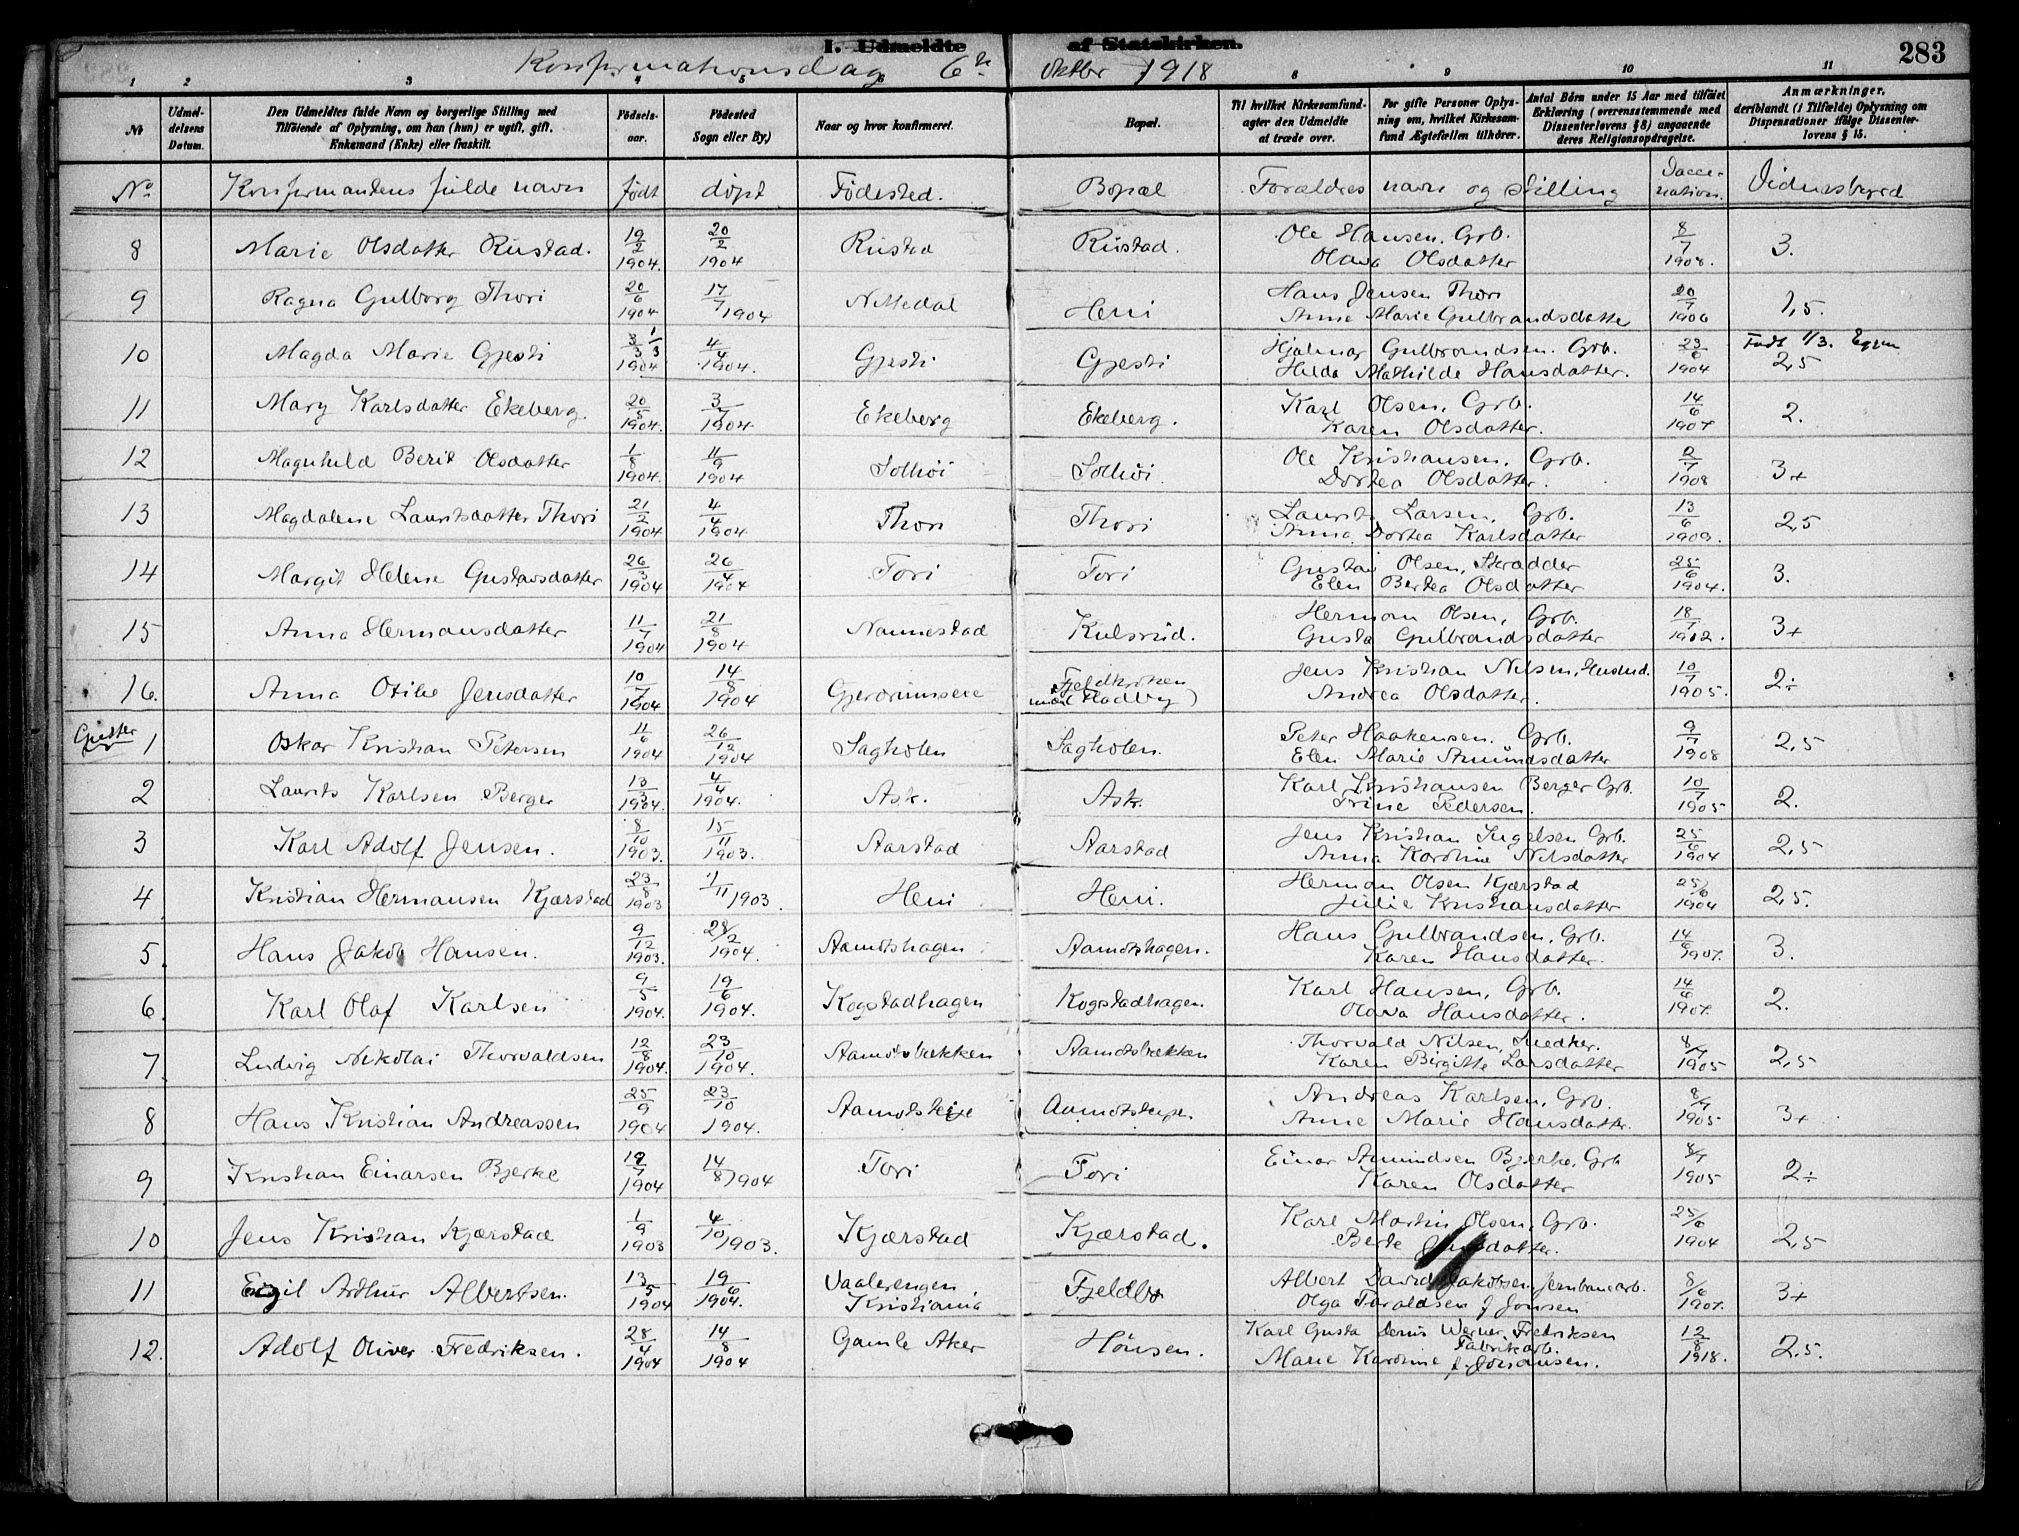 I. Udmeldte af Statskirken.
283
Konfirmationsdag 6te oktbr 1918
1 2 3 4 5 6 8 9 10 11
№
Udmeldelsens Datum.
Den Udmeldtes fulde Navn og borgerlige Stilling med Tilföiende af Oplysning, om han (hun) er ugift, gift, Enkemand (Enke) eller fraskilt.
Födselsaar.
Födested Sogn eller By)
Naar og hvor konfirmeret.
Bopæl.
Til hvilket Kirkesamfund agter den Udmeldte at træde over.
For gifte Personer Oplysning om, hvilket Kirkesamfund Ægtefællen tilhörer.
Antal Börn under 15 Aar med tilföiet Erklæring (overensstemmende med Dissenterlovens § 8) angaaende deres Religionsopdragelse.
Anmærkninger, deriblandt (i Tilfælde) Oplysning om Dispensationer ifölge Dissenterlovens § 15.
No Konfirmandens fulde navn født døpt Fødested. Bopæl Forældres navn og stilling Vaccination. Vidnesbyrd
8 Marie Olsdatter Rustad. 19/2 1904. 20/2 1904 Rustad Rustad. Ole Hansen. Grb. Olava Olsdatter 8/7 1908. 3.
9 Ragna Gulborg Thori 20/6 1904 17/7 1904 Nittedal Heni Hans Jensen Thori Anne Marie Gulbrandsdatter 20/7 1906 1,5.
10 Magda Marie Gjesti 3/3 1/3 1904 4/4 1904. Gjesti Gjesti Hjalmar Gulbrandsen. Grb. Hilda Mathilde Hansdatter. 23/6 1904 Født 1/3. 2,5
11 Mary Karlsdatter Ekeberg. 20/5 1904. 3/7 1904 Ekeberg Ekeberg. Karl Olsen, Grb. Karen Olsdatter. 14/6 1907 2.
12 Magnhild Berit Olsdatter 1/8 1904. 11/9 1904 Solhøi Solhøi. Ole Kristiansen, Grb. Dortea Olsdatter. 2/7 1908 3+
13 Magdalene Lauritsdatter Thori 21/2 1904 4/4 1904 Thori Thori Laurits Larsen, Grb. Anna Dortea Karlsdatter 13/6 1909. 2,5
14 Margit Helene Gustavsdatter 26/3 1904 26/4 1904 Tori Tori Gustav Olsen, Skrædder Elen Bertea Olsdatter 25/6 1904. 3.
15 Anna Hermansdatter 11/7 1904 21/8 1904 Nannestad Kulsrud. Herman Olsen, Grb. Gusta Gulbrandsdatter 18/7 1912. 3+
16. Anna Otilie Jensdatter 10/7 1904 14/8 1904 Gjerdrumseie Fjeldkroken (Fladby) Jens Kristian Nilsen, Husmd. Andrea Olsdatter. 10/7 1905. 2÷
Gutter
1 Oskar Kristian Petersen 11/6 1904 26/12 1904 Sagholen Sagholen. Peter Haakensen. Grb. Elen Marie Amundsdatter 9/7 1908 2,5
2 Laurits Karlsen Berger 13/3 1904. 4/4 1904. Ask. Ask. Karl Kristiansen Berger Grb. Trine Pedersen 10/7 1905 2.
3 Karl Adolf Jensen. 8/10 1903. 15/11 1903. Aarstad Aarstad Jens Kristian Ingelsen Grb. Anna Karoline Nilsdatter 25/6 1904 2,5
4 Kristian Hermansen Kjærstad 23/8 1903 1/11 1903. Heni Heni. Herman Olsen Kjærstad Julie Kristiansdatter 25/6 1904 2,5.
5. Hans Jakob Hansen. 9/12 1903. 28/2 1904. Aamotshagen Aamotshagen. Hans Gulbrandsen, Grb. Karen Hansdatter. 14/6 1907. 3.
6. Karl Olaf Karlsen 9/5 1904. 19/6 1904. Kogstadhagen Kogstadhagen. Karl Hansen, Grb. Olava Hansdatter. 14/6 1907. 2.
7. Ludvig Nikolai Thorvaldsen 12/8 1904. 23/10 1904. Aamotsbækken Aamotsbækken Thorvald Nilsen, Snedker. Karen Birgitte Larsdatter 8/7 1905 2,5
8 Hans Kristian Andreassen 25/9 1904 23/10 1904. Aamotseie Andreas Karlsen, Grb. Anne Marie Hansdatter. 8/7 1905 3+
9 Kristian Einarsen Bjerke 1904 14/8 1904 Tori Tori Einar Amundsen Bjerke, Grb Karen Olsdatter 8/7 1905 2÷
10 Jens Kristian Kjærstad 1/9 1903 4/10 1903. Kjærstad Kjærstad. Karl Martin Olsen, Grb. Berte 25/6 1904 2,5
11 Egil Arthur Albertsen. 13/5 1904 19/6 1904. Vaalerengen Kristiania Fjeldbo Albert David Jakobsen Jernbanearb. Olga Taraldsen f Jonsen 8/6 1907. 3+
12. Adolf Oliver Fredriksen. 28/4 1904 14/8 1904 Gamle Aker Hønsen. Karl Gusta Denis Werner Fredriksen Fabrikarb. Marie Karoline f. Johansen. 12/8 1918. 2,5.